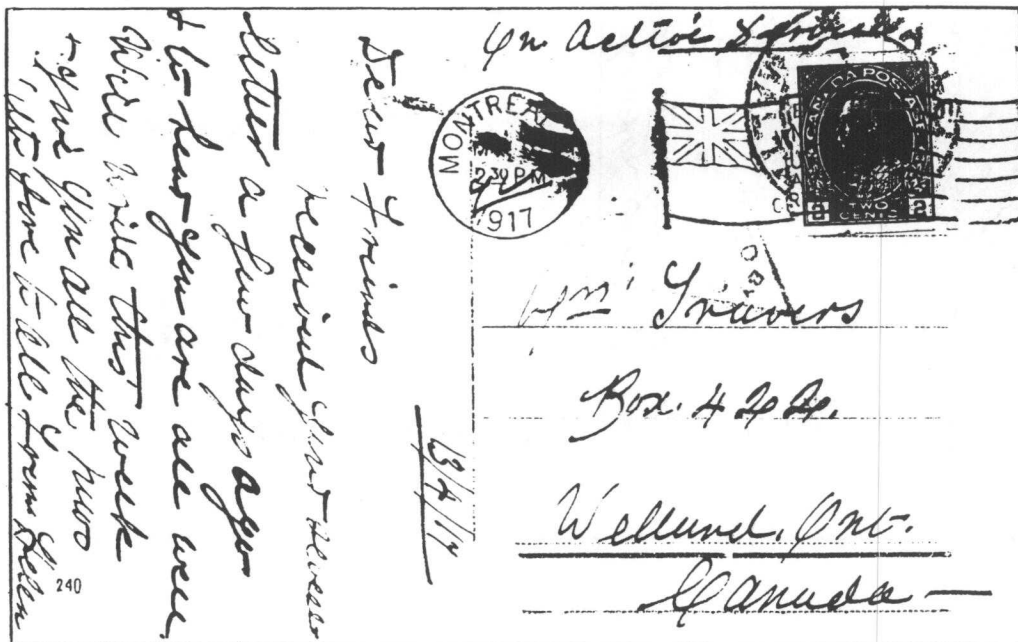 On Active Service
MONTREAL
2 30 P.M.
1917
CANADA POSTAGE
2 TWO CENTS 2
Wm Travers
Box. 424.
Welland, Ont.
Canada
13/4/17
Dear Friends
received your
letter a few days ago
& to hear you are all well
Will write this week
& give you all the news
with love to all from Helen
240